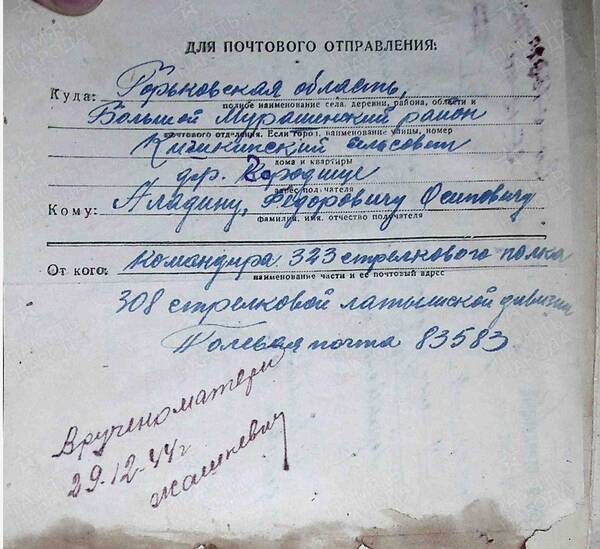 ДЛЯ ПОЧТОВОГО ОТПРАВЛЕНИЯ:
Куда: Горьковская область,
полное наименование села, деревни, района, области и
Большой Мурашинский район
почтового отделения. Если город, наименование улицы, номер
Кишкинский с/совет
дома и квартиры
дер. Городище
адрес получателя
Кому: Аладину, Фёдоровичу Осиповичу
фамилия, имя, отчество получателя
От кого: Командира 323 стрелкового полка
наименование части и ее почтовый адрес
308 стрелковой латышской дивизии
Полевая почта 83583
Вручено матери
29-12-44 г